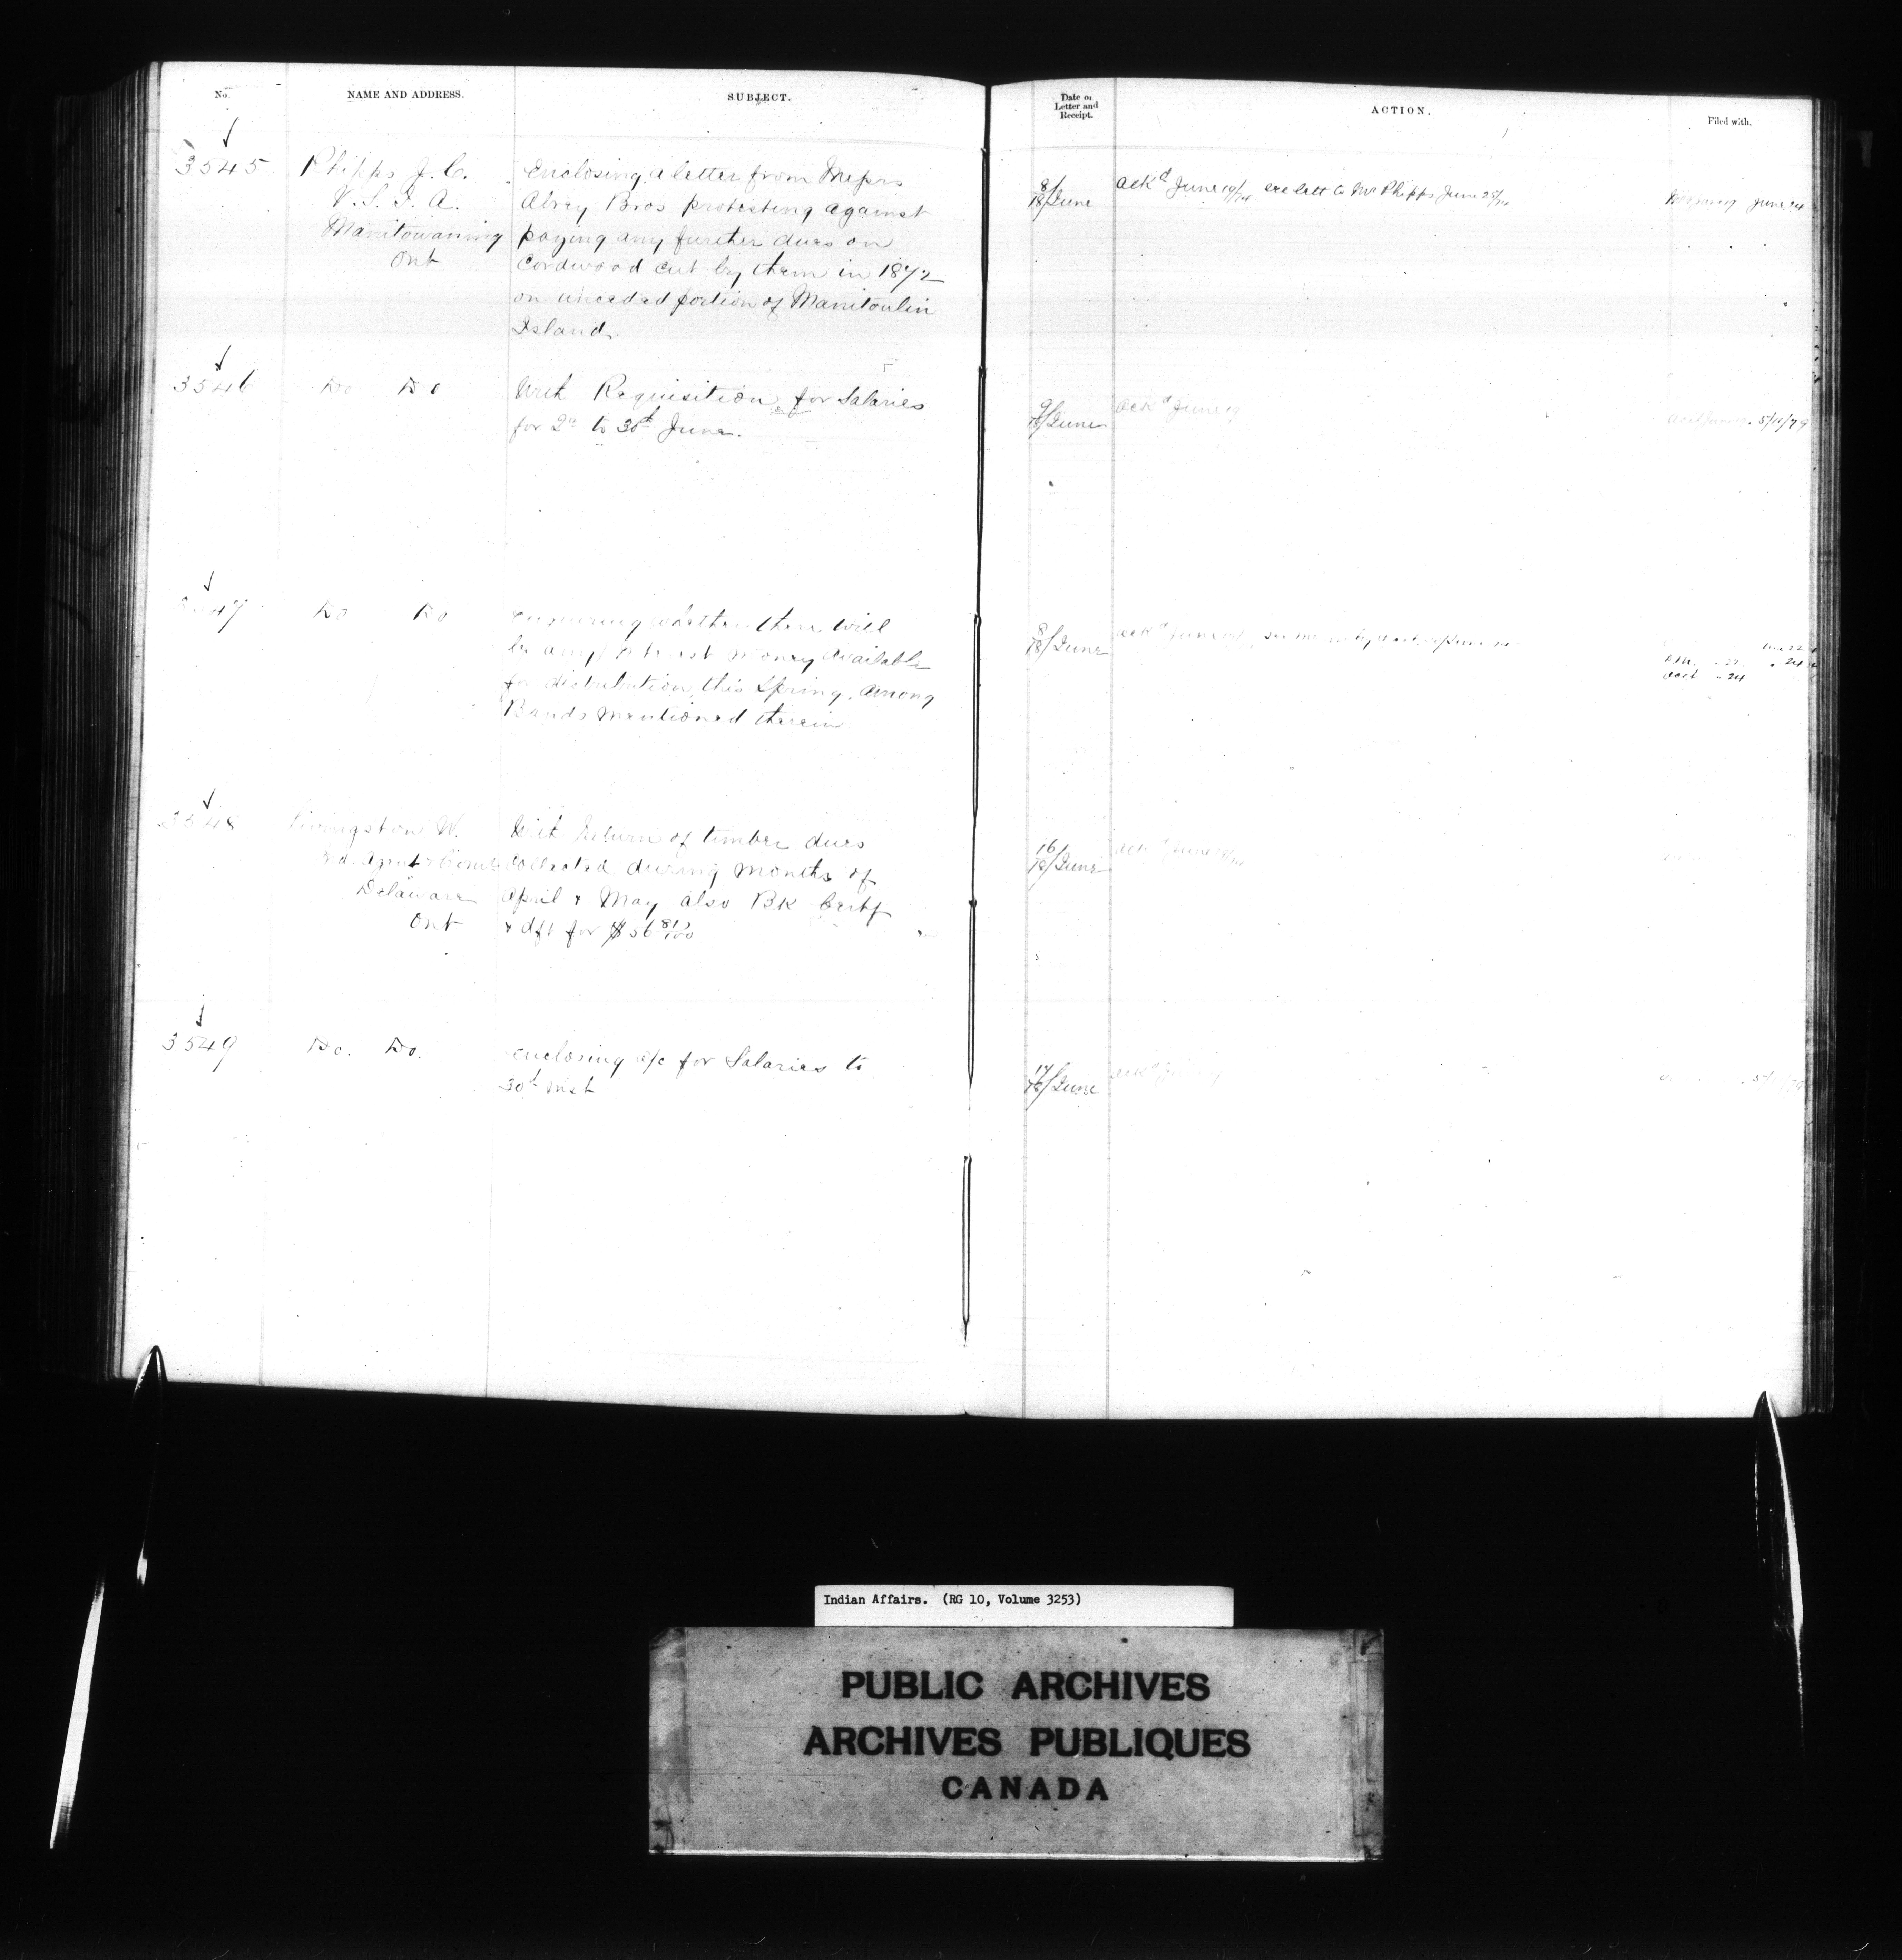 No.
NAME AND ADDRESS.
SUBJECT.
Date of
Letter and
Receipt.
ACTION.
Filed with.
3545
Phipps J. C.
V. S. I. A.
Manitowaning
Ont
Enclosing a letter from Messrs
Abrey Bros protesting against
paying any further dues on
Cordwood cut by them in 1872
on unceded portion of Manitoulin
Island.
8/
18/June
Ackd June 19/74 see lett to Mr Phipps June 25/74
June 24
3546
Do Do
With Requisition for Salaries
for 2n to 30th June.
9/
18/June
Ackd June 19
5/11/79
47
Do Do
enquiring whether there will
be any Interest money available
for distribution this Spring, among
Bands mentioned therein
8/
18/June
Ackd June
24
24
3548
Livingston W.
Delaware
Ont
With Return of timber dues
Collected during months of
April & May also Bk Certf
& dft for $56 81/100
16/
18/June
Ackd June
3549
Do. Do.
enclosing a/c for Salaries to
30th inst
17/
18/June
Ackd
Indian Affairs. (RG 10, Volume 3253)
PUBLIC ARCHIVES
ARCHIVES PUBLIQUES
CANADA